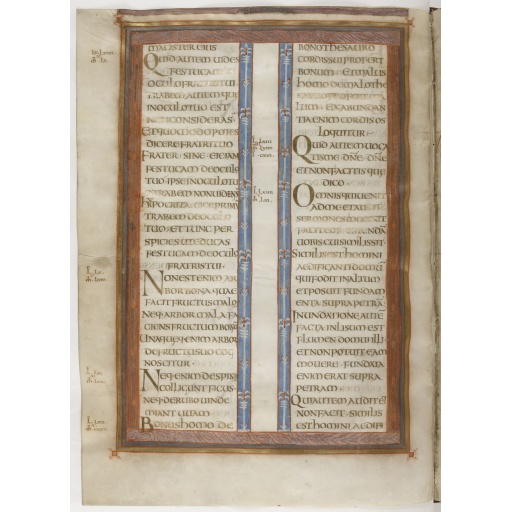 MAGISTER EIUS
QUID AUTEM UIDES
FESTUCAM
OCULO FRATRIS TUI
TRABEM AUTEM QUE
IN OCULO TUO EST
NON CONSIDERAS
ET QUOMODO POTES
DICERE FRATRI TUO
FRATER SINE EICIAM
FESTUCAM DE OCULO
TUO IPSE IN OCULO
TRABEM NON UIDENS
HYPOCRITA EICE PRIMU
TRABEM DE OCULO
TUO ET TUNC PER
SPICIES UT EDUCAS
FESTUCAM DE OCULO
FRATRIS TUI
NON EST ENIM AR
BOR BONA QUAE
FACIT FRUCTUS MALOS
NEQ ARBOR MALA FA
CIENS FRUCTUM BONU
UNAQUAEQ ENIM ARBOR
DE FRUCTU SUO COG
NOSCITUR
NEQ ENIM DE SPINIS
COLLIGUNT FICUS
NEQ DE RUBO UINDE
MIANT UUAM
BONUS HOMO DE
BONO THESAURO
CORDIS SUI PROFERT
BONUM ET MALUS
HOMO DE MALO THE
LUM EX ABUNDAN
TIA ENIM CORDIS OS
LOQUITUR
QUID AUTEM UOCA
TIS ME DNE DNE
ET NON FACITIS QUE
DICO
OMNIS QUI UENIT
AD ME ET AUDIT
SERMONES MEOS ET
FACIT EOS OSTENDA
UOBIS CUI SIMILIS SIT
SIMILIS EST HOMINI
AEDIFICANTI DOMU
QUI FODIT IN ALTUM
ET POSUIT FUNDAM
ENTA SUPRA PETRA
INUNDATIONE AUTE
FACTA INLISUM EST
FLUMEN DOMUI ILLI
ET NON POTUIT EAM
MOUERE FUNDATA
ENIM ERAT SUPRA
PETRAM
QUI AUTEM AUDIT ET
NON FACIT SIMILIS
EST HOMINI AEDIFI